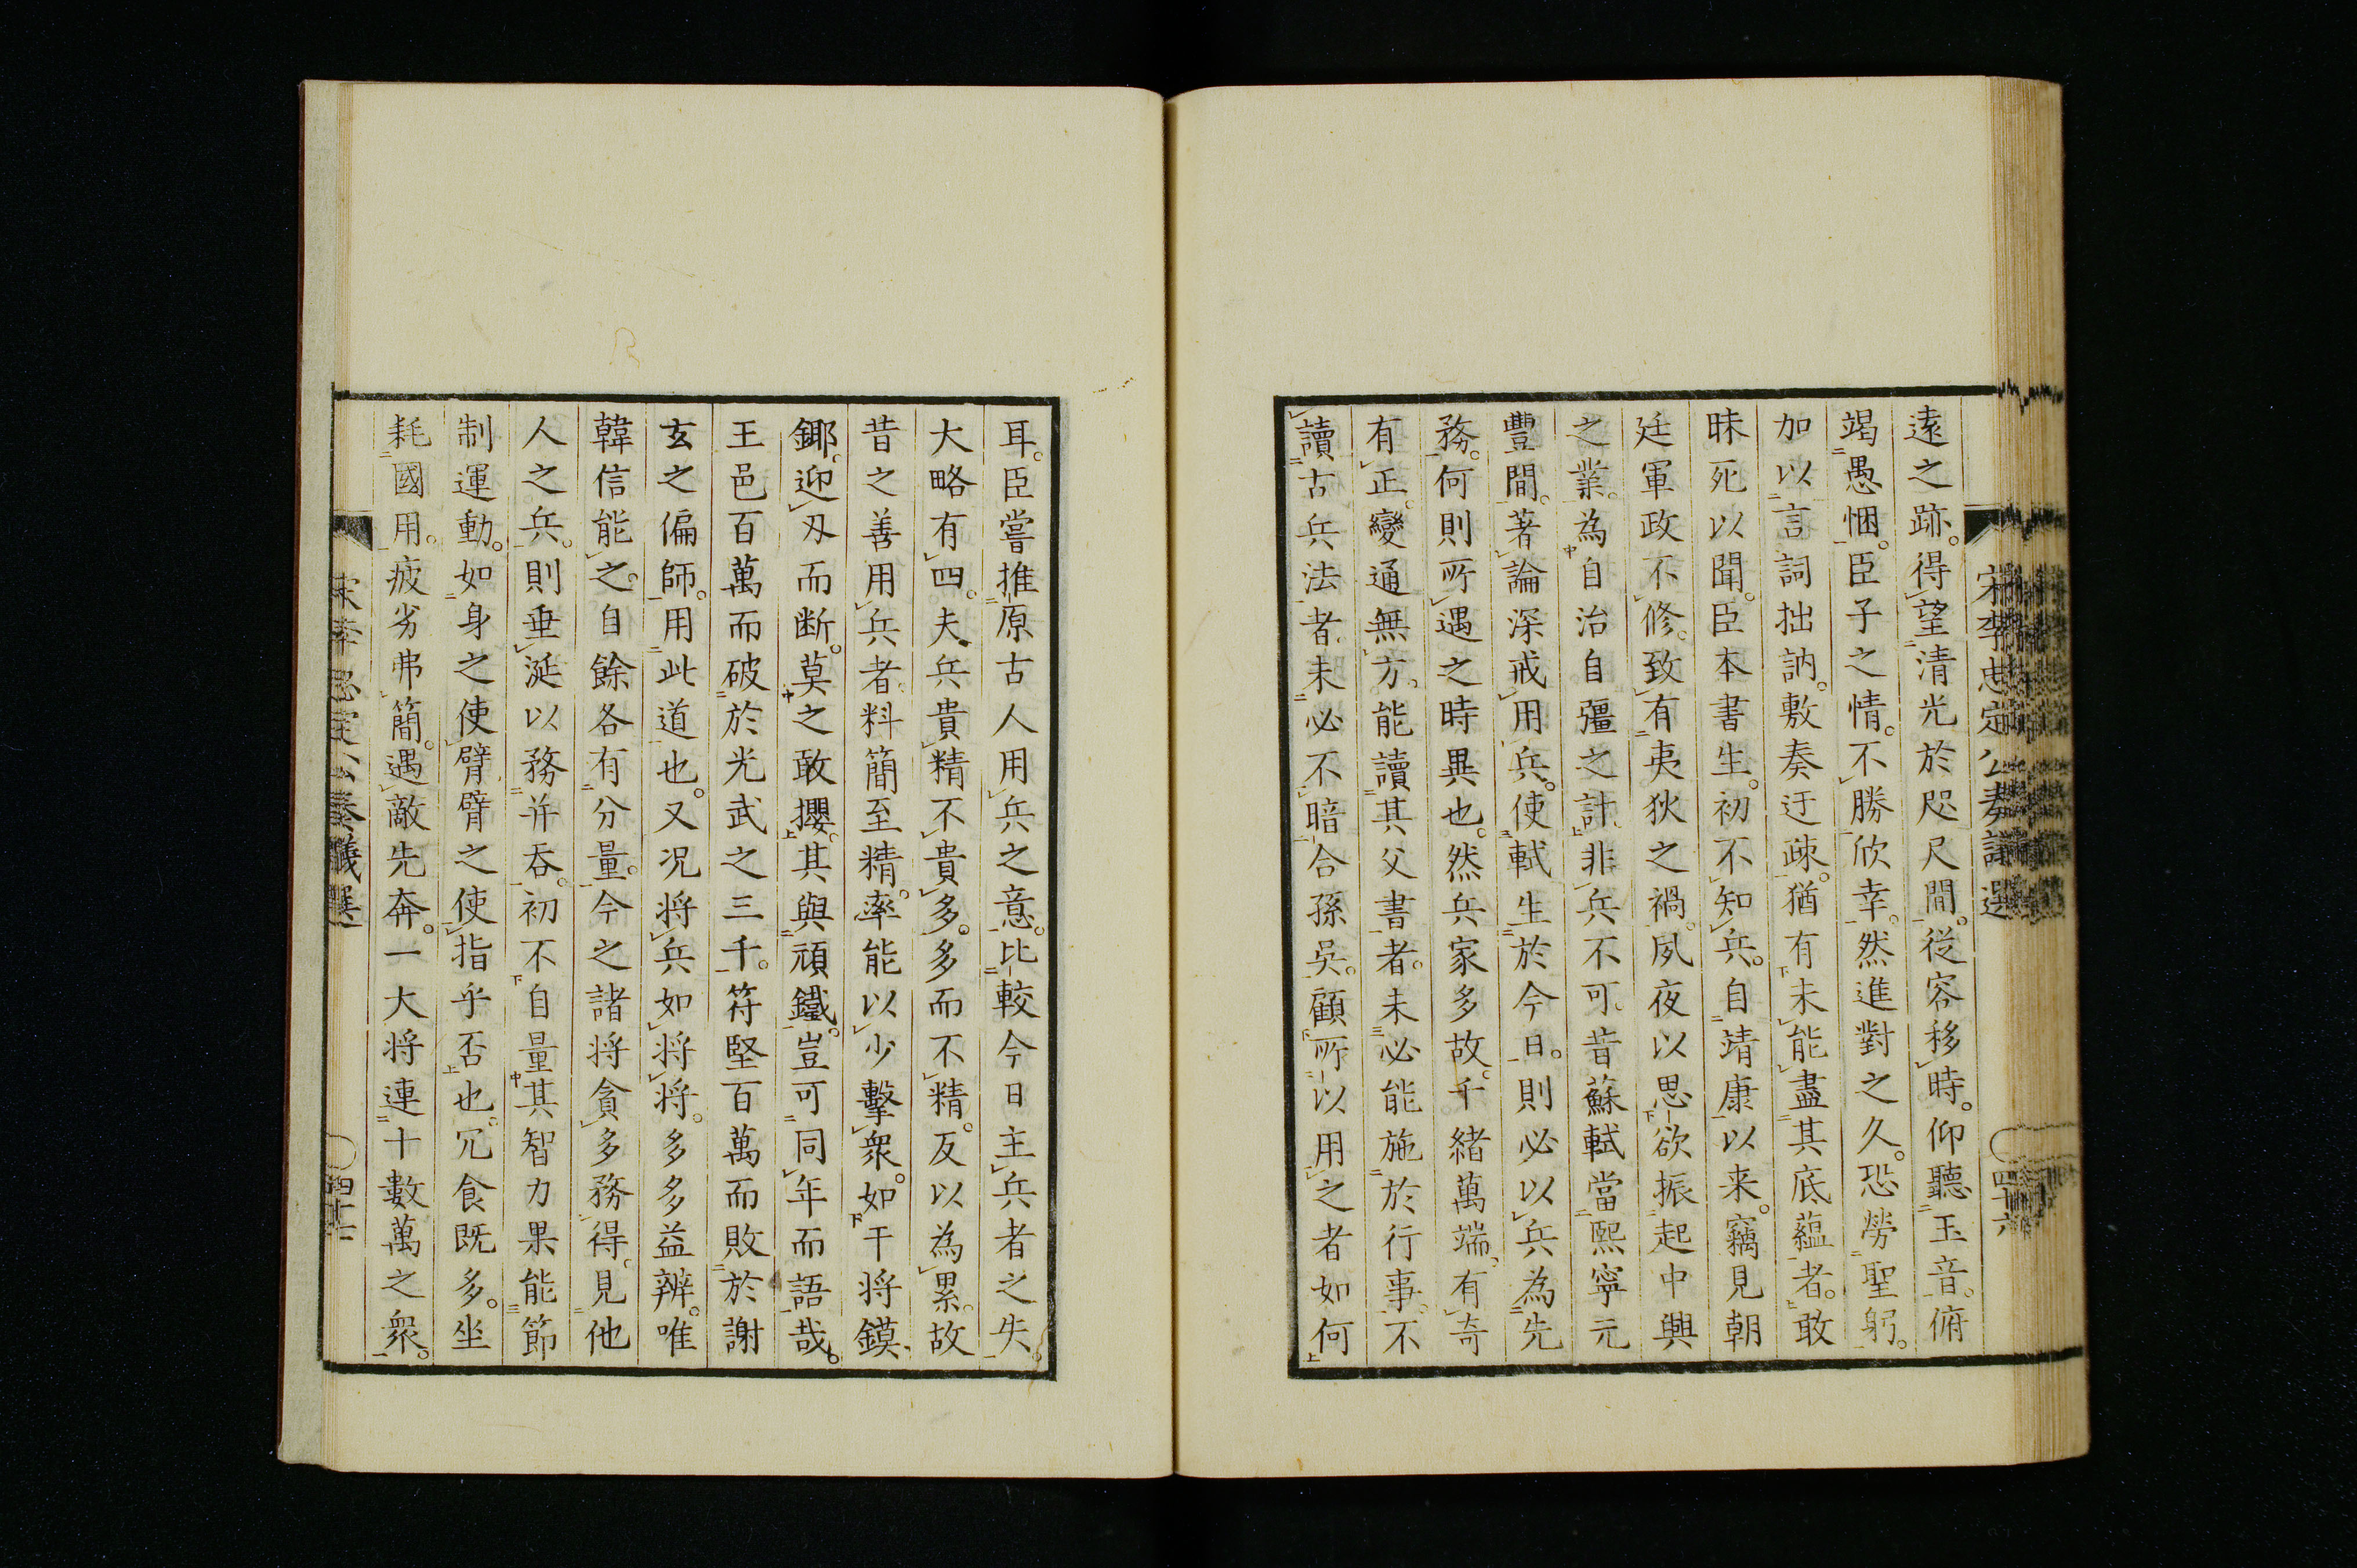 宋李忠定公奏議選
四十六
遠之跡。得望清光於咫尺間。從容移時。仰聽玉音。俯
竭愚悃。臣子之情。不勝欣幸。然進對之久。恐勞聖躬。
加以言詞拙訥。敷奏迂疎。猶有未能盡其底蘊者。敢
昧死以聞。臣本書生。初不知兵。自靖康以来。竊見朝
廷軍政不修。致有夷狄之禍。夙夜以思。欲振起中興
之業。為自治自彊之計。非兵不可。昔蘇軾當熙寧元
豐間。著論深戒用兵。使軾生於今日。則必以兵為先
務。何則所遇之時異也。然兵家多故。千緒萬端。有奇
有正。變通無方。能讀其父書者。未必能施於行事。不
讀古兵法者。未必不暗合孫吳。顧所以用之者如何
耳。臣嘗推原古人用兵之意。比較今日主兵者之失。
大略有四。夫兵貴精不貴多。多而不精。反以為累。故
昔之善用兵者。料簡至精。率能以少擊衆。如干将鏌
鎁。迎刄而断。莫之敢攖。其與頑鐵。豈可同年而語哉。
王邑百萬而破於光武之三千。符堅百萬而敗於謝
玄之偏師。用此道也。又況将兵如将将。多多益辨。唯
韓信能之。自餘各有分量。今之諸将貪多務得。見他
人之兵。則垂涎以務并吞。初不自量其智力果能節
制運動。如身之使臂。臂之使指乎否也。冗食既多。坐
耗國用。疲劣弗簡。遇敵先奔。一大将連十數萬之衆。
宋李忠定公奏議選
四十七